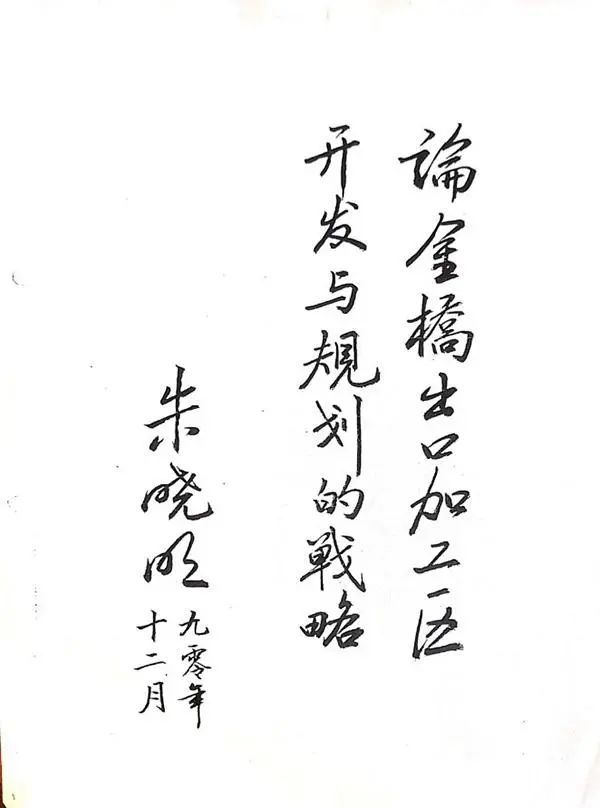 論金橋出口加工区
开发与規划的戦略
朱晓明
九零年
十二月